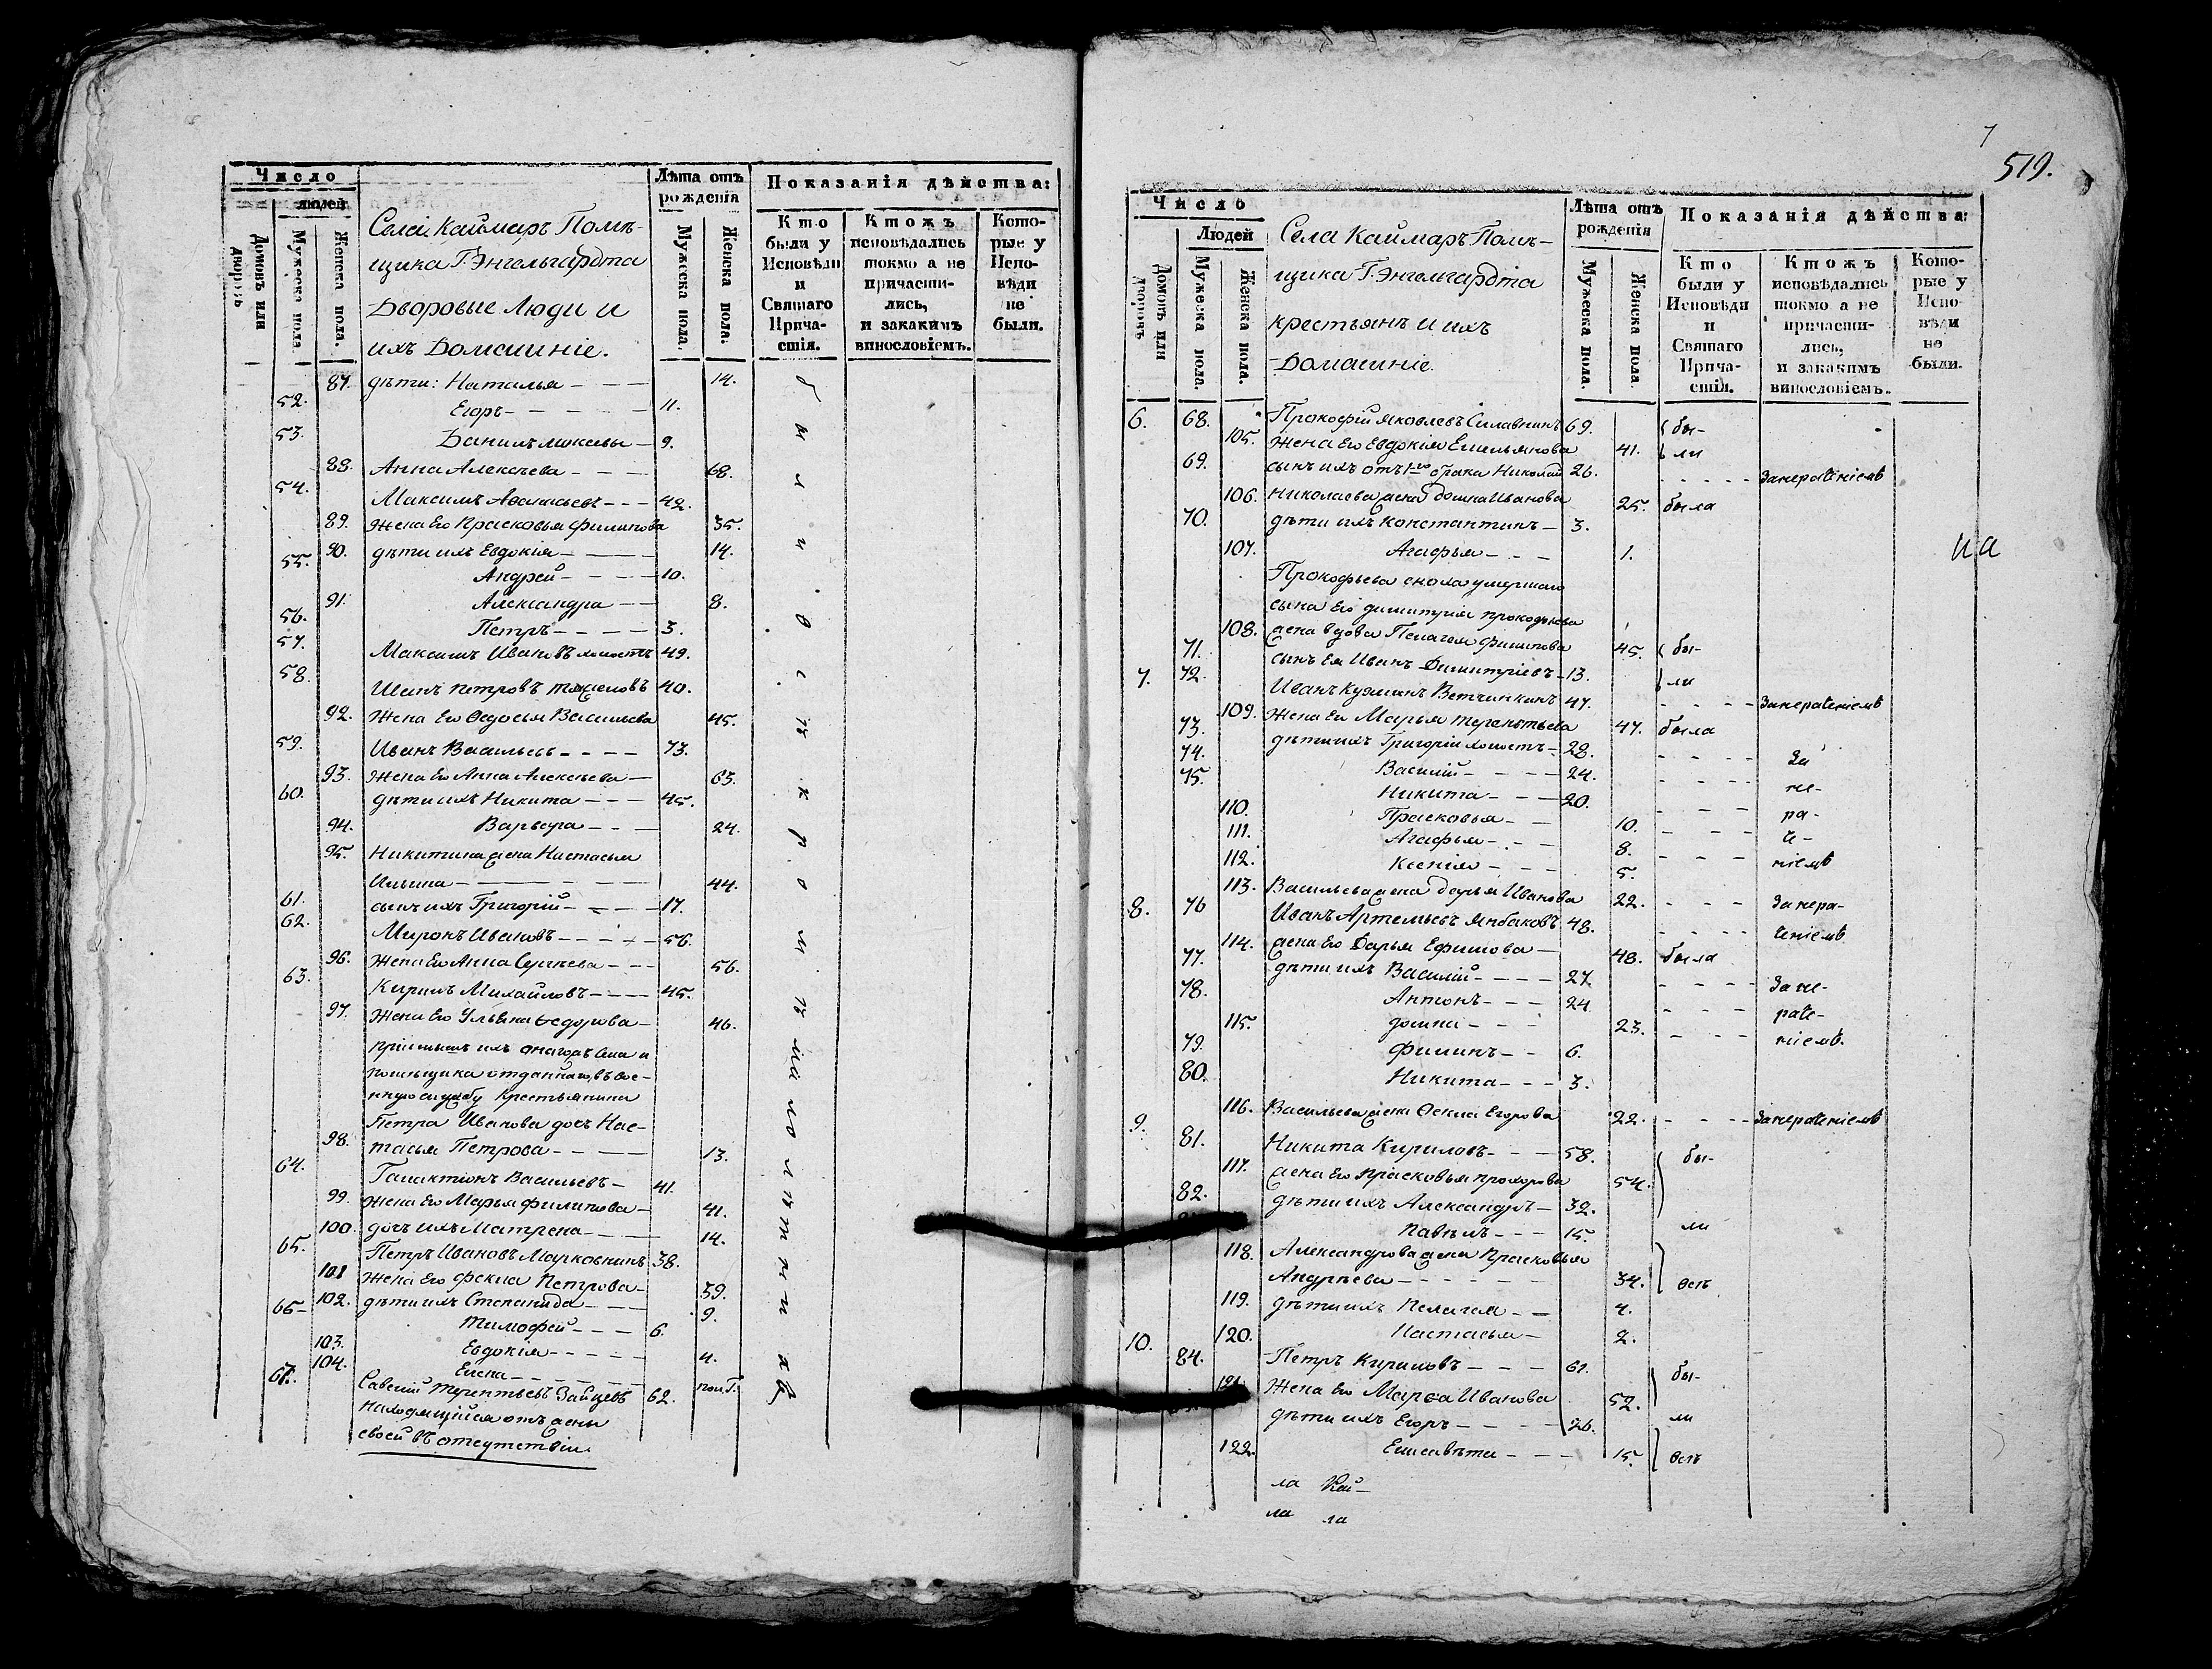 Число
людей
Домовъ или дворовъ
Мужеска пола.
Женска пола.
Села Каймаръ Помѣ-
щика Г. Энгельгардта
Дворовые люди и
ихъ Домашніе.
Лѣта отъ
рожденія
Мужеска пола.
Женска пола.
Показанія дѣйства:
Кто
были у
Исповѣди
и
Святаго
Прича-
стія.
Ктожъ
исповѣдались
токмо а не
причасти-
лись,
и закакимъ
винословіемъ.
Кото-
рые у
Испо-
вѣди
не
были.
87. дѣти: Наталья - - - 14.
52. Егоръ - - - - 11.
53. Данилъ - 9.
88. Анна Алексѣева - - - 68.
54. Максимъ - - - 42.
89. Жена Его Прасковья Филипова 35.
90. дѣти ихъ Евдокія - - - 14.
55. Андрей - - - - 10.
91. Александра - - 8.
56. Петръ - - - - 3.
57. Максимъ Ивановъ холостъ 49.
58. Петровъ 40.
92. Жена Его Ѳедосья Васильева 45.
59. Иванъ Васильевъ - - - - 73.
93. Жена Его Анна Алексѣева - 63.
60. дѣти ихъ Никита - - - 45.
94. Варвара - - - 24.
95. Никитина жена Настасья
Ильина - - - - 44.
61. сынъ ихъ Григорій - - - - 17.
62. Миронъ Ивановъ - - - - - 56.
96. Жена Его Анна Сергѣева - - - 56.
63. Кирилъ Михайловъ - - - - 45.
97. Жена Его Ульяна Ѳедорова - 46.
помѣщика отданнаго, въ вое-
нную службу Крестьянина
Петра Иванова дочь Нас-
98. тасья Петрова - - - - 13.
64. Галактіонъ Васильевъ - 41.
99. Жена Его Марья Филипова - 41.
100. дочь ихъ Матрена - - - 14.
65. Петръ Ивановъ Марковнинъ 38.
101 Жена Его Фекла Петрова - 39.
102. дѣти ихъ Степанида - - - 9.
66- Тимофей - - - 6.
103. Евдокія - - - - - 4.
104. Елена - - - - пол. Г.
67. Савелій Терентьевъ Зайцевъ 62.
находящійся отъ жены
своей въ отсутствіи.
519.
Число
Людей
Домовъ или дворовъ
Мужеска пола.
Женска пола.
Села Каймаръ Помѣ-
щика Г. Энгельгардта
крестьянъ и ихъ
Домашніе.
Лѣта отъ
рожденія
Мужеска пола.
Женска пола.
Показанія дѣйства:
Кто
были у
Исповѣди
и
Святаго
Прича-
стія.
Ктожъ
исповѣдались
токмо а не
причасти-
лись,
и закакимъ
винословіемъ.
Кото-
рые у
Испо-
вѣди
не
были.
6. 68. Прокофій Яковлевъ 69. бы-
105. Жена Его Евдокія Емельянова 41. ли
69. сынъ ихъ отъ 1го брака Николай 26. - - - - - Занераченіемъ
106. Николаева жена Домна Иванова 25. была
70. дѣти ихъ Константинъ - 3.
107. Агафья - - - 1.
на
Прокофьева сноха умершаго
сына Его Димитрія Прокофьева
108. жена вдова Пелагея Филипова 45. бы-
71. сынъ Ея Иванъ Димитріевъ - 13. ли
7. 72. Иванъ Кузминъ 47. - - - - Занераченіемъ
109. Жена Его Марья Терентьева 47. была
73. дѣти ихъ Григорій холостъ - 28. - - - - За
74. Василій - - - - 24. - - - - не-
75. Никита - - - 20. - - - ра-
110. Прасковья - - 10. - - - че-
111. Агафья - - - 8. - - - ніемъ
112. Ксенія - - - - 5.
113. Васильева жена Дарья Иванова 22. - - - Занера-
8. 76 Иванъ Артемьевъ 48. - - - - ченіемъ
114. жена Его Дарья Ефимова - 48. была
77. дѣти ихъ Василій - - - - 27. - - - - Зане-
78. Антонъ - - - 24 - - - раче-
115. Домна - - - 23. - - - ніемъ.
79. Филипъ - - 6.
80. Никита - - - 3.
116. Васильева жена Ѳекла Егорова 22. - - - - Занераченіемъ
9. 81. Никита Кириловъ - - - 58. бы-
117. жена Его Прасковья Прохорова 54.
82. дѣти ихъ Александръ - 32. ли
Павелъ - - - 15.
118. Александрова жена Прасковья
Андреева - - - - - 34. всѣ
119. дѣти ихъ Пелагея - - 4.
120. Настасья - 2.
10. 84. Петръ Кириловъ - - - 61. бы-
121. Жена Его Марѳа Иванова 52. ли
дѣти ихъ Егоръ - - - - 26.
122. Елисавѣта - - - 15. всѣ
ла Кай-
ла ла